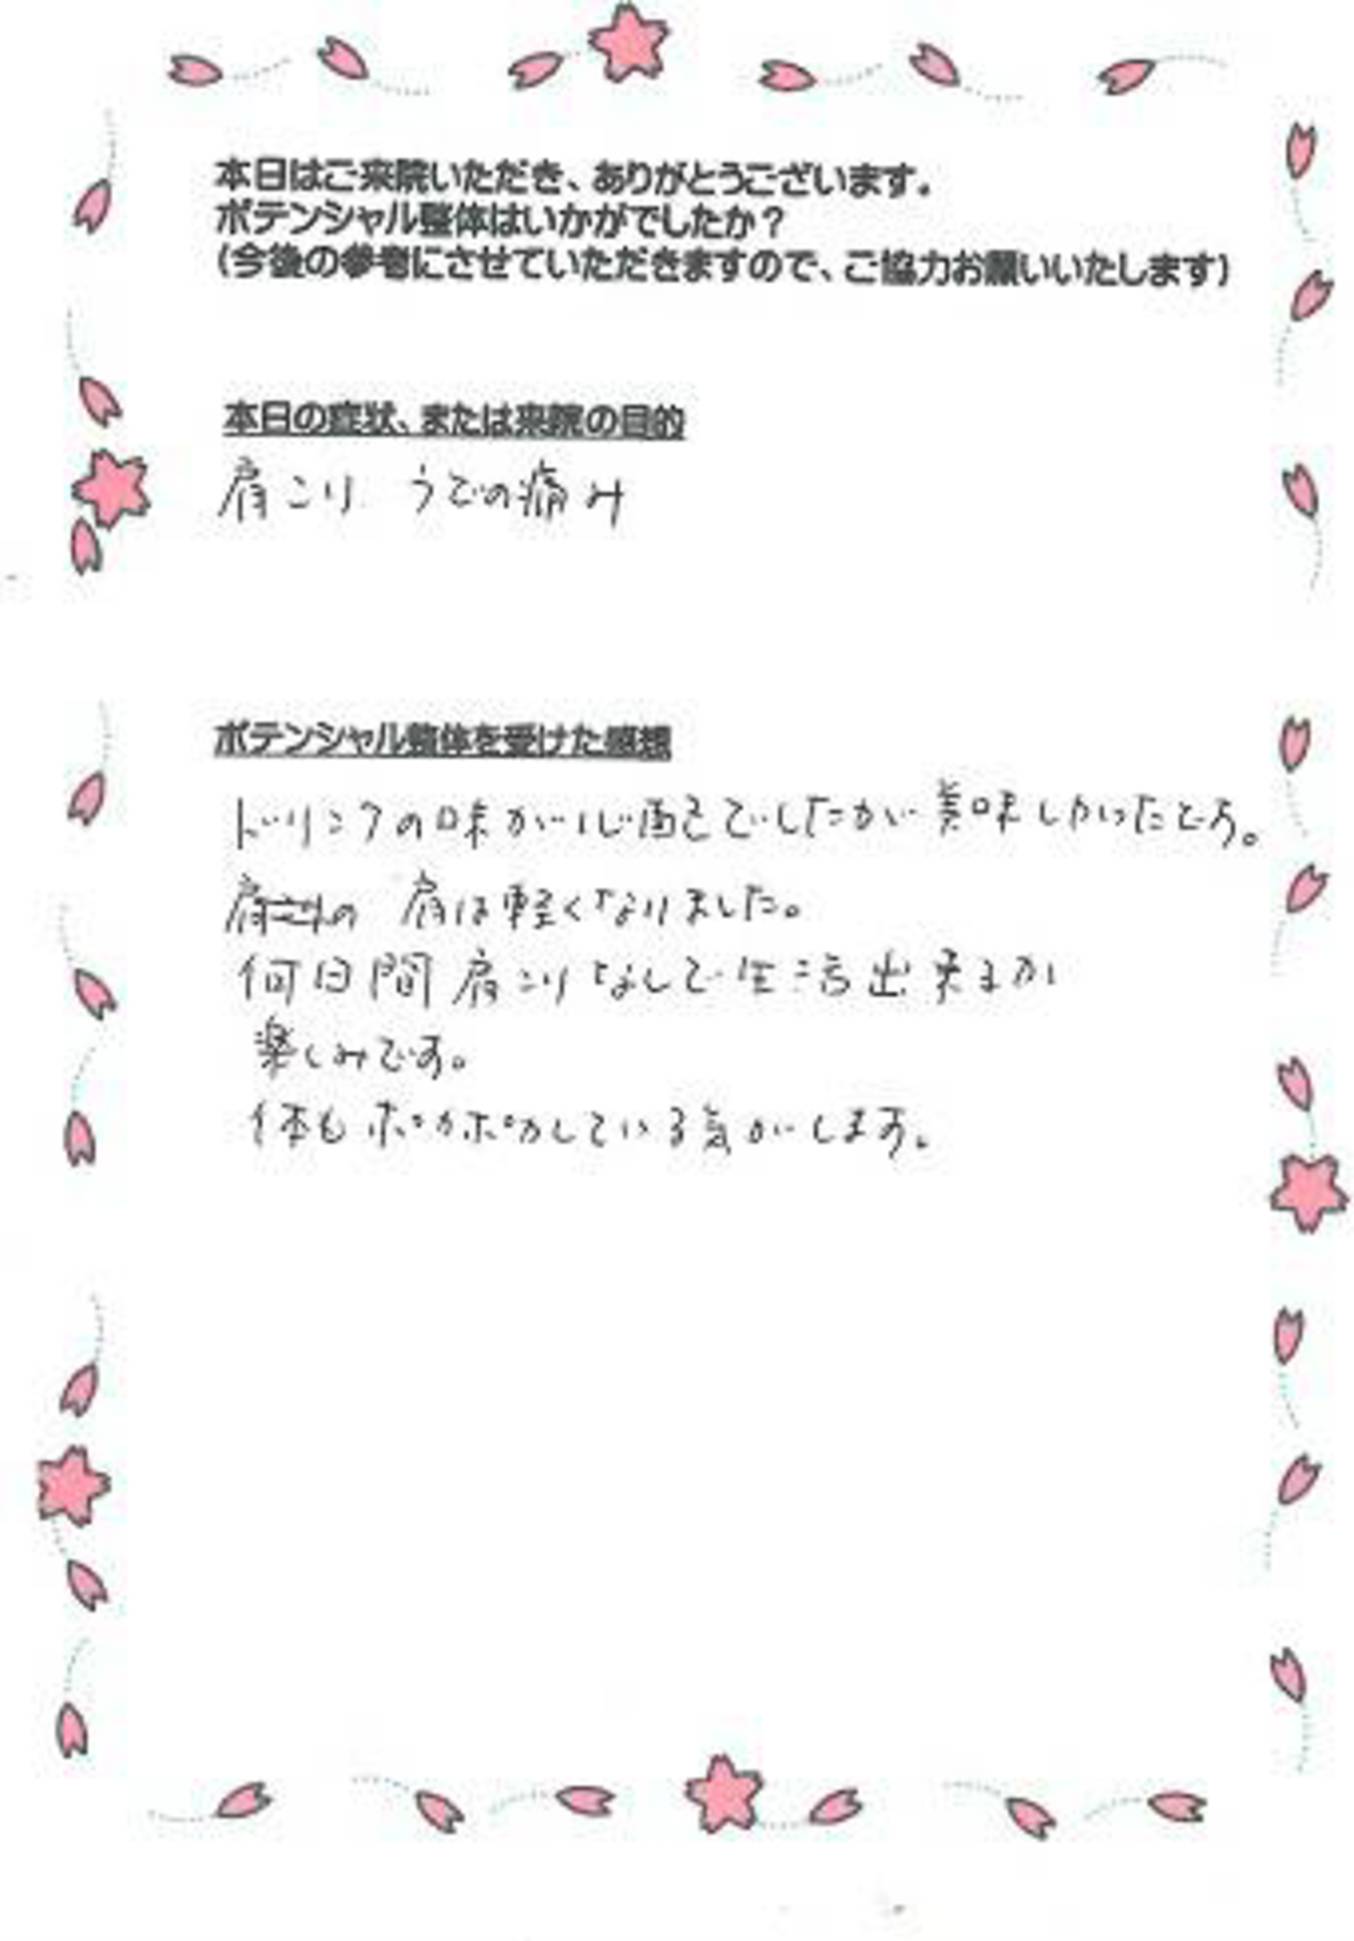 本日はご来院いただき、ありがとうございます。
ポテンシャル整体はいかがでしたか？
(今後の参考にさせていただきますので、ご協力お願いいたします)
本日の症状、または来院の目的
肩こり うでの痛み
ポテンシャル整体を受けた感想
ドリンクの味が心配でしたが美味しかったです。
肩は軽くなりました。
何日間肩こりなしで生活出来るか
楽しみです。
体もポカポカしている気がします。